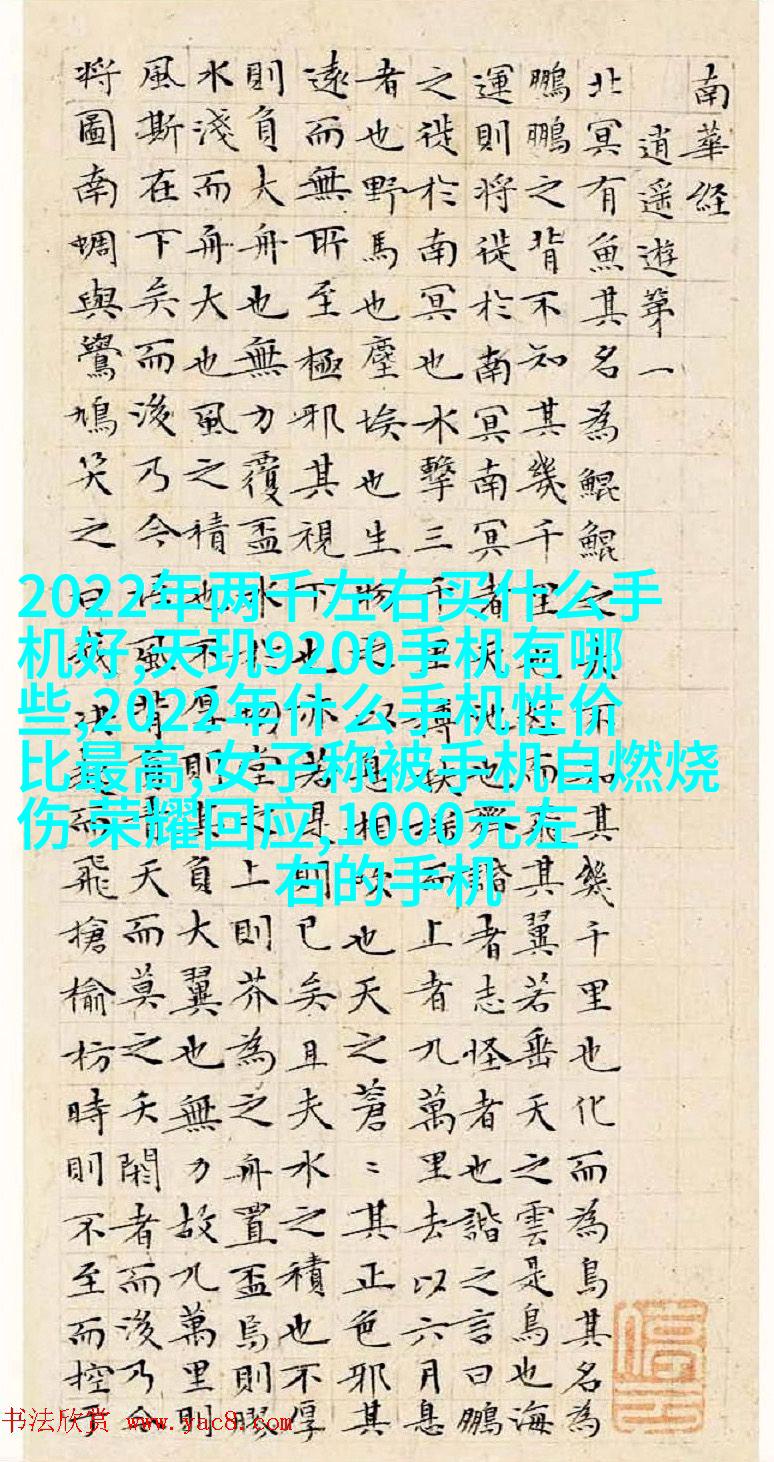 南華經
逍遥遊第一
北冥有魚其名為鯤鯤之大不知其幾千里也化而為鳥其名為
鵬鵬之背不知其幾千里也怒而飛其翼若垂天之雲是鳥也海
運則將徙於南冥南冥者天池也齊諧者志怪者也諧之言曰鵬
之徙於南冥也水擊三千里摶扶搖而上者九萬里去以六月息
者也野馬也塵埃也生物之以息相吹也天之蒼〻其正色邪其
遠而無所至極邪其視下也亦若是則已矣且夫水之積也不厚
則負大舟也無力覆盃水於坳堂之上則芥為之舟置盃焉則膠
水淺而舟大也風之積也不厚則其負大翼也無力故九萬里則
風斯在下矣而後乃今培風背負青天而莫之夭閼者而後乃今
將圖南蜩與鷽鳩笑之曰我決起而飛搶榆枋時則不至而控
2022年两千左右买什么手
机好,天玑9200手机有哪
些,2022年什么手机性价
比最高,女子称被手机自燃烧
伤 荣耀回应,1000元左
右的手机
书法欣赏 www.yac8.com